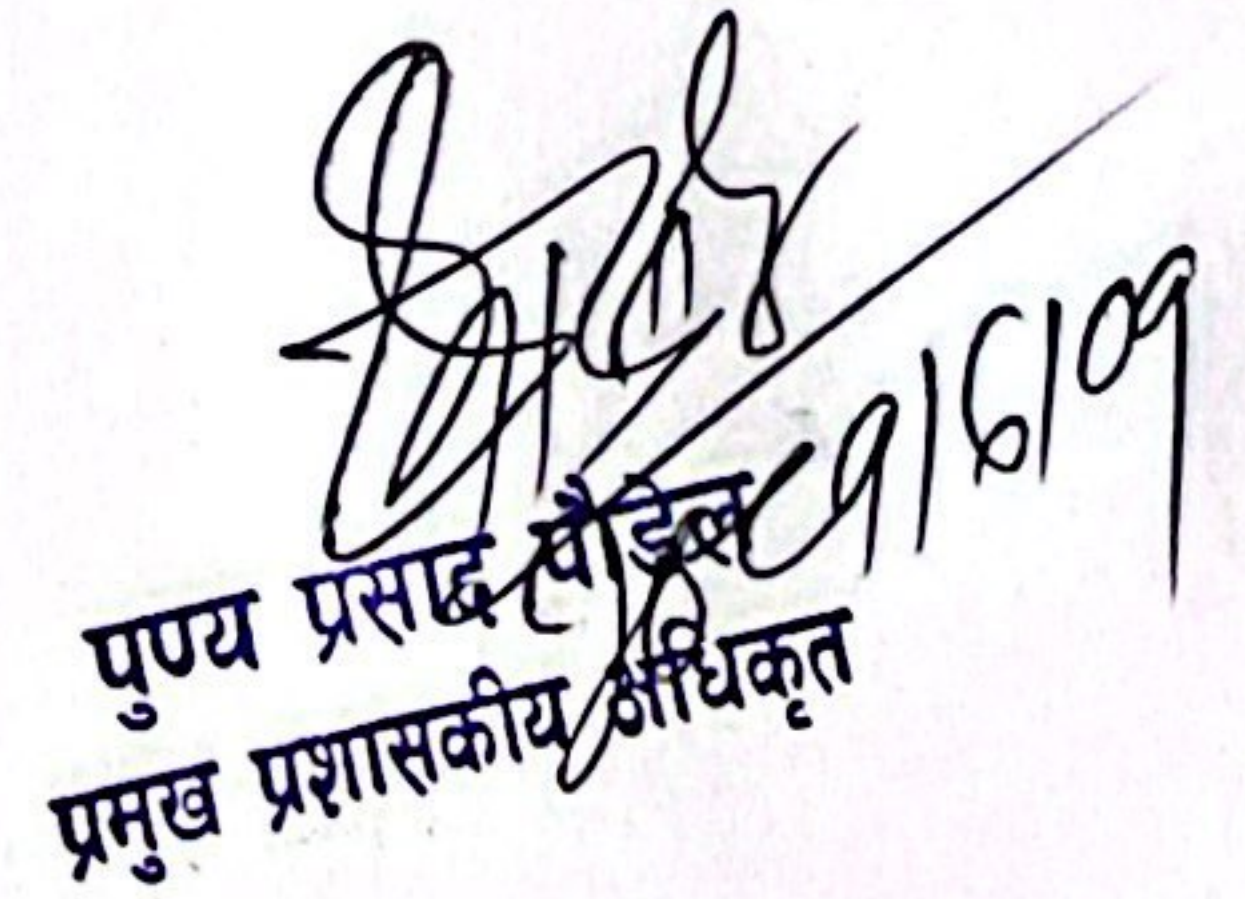 ८१।६।०१
पुण्य प्रसाद पौडेल
प्रमुख प्रशासकीय अधिकृत